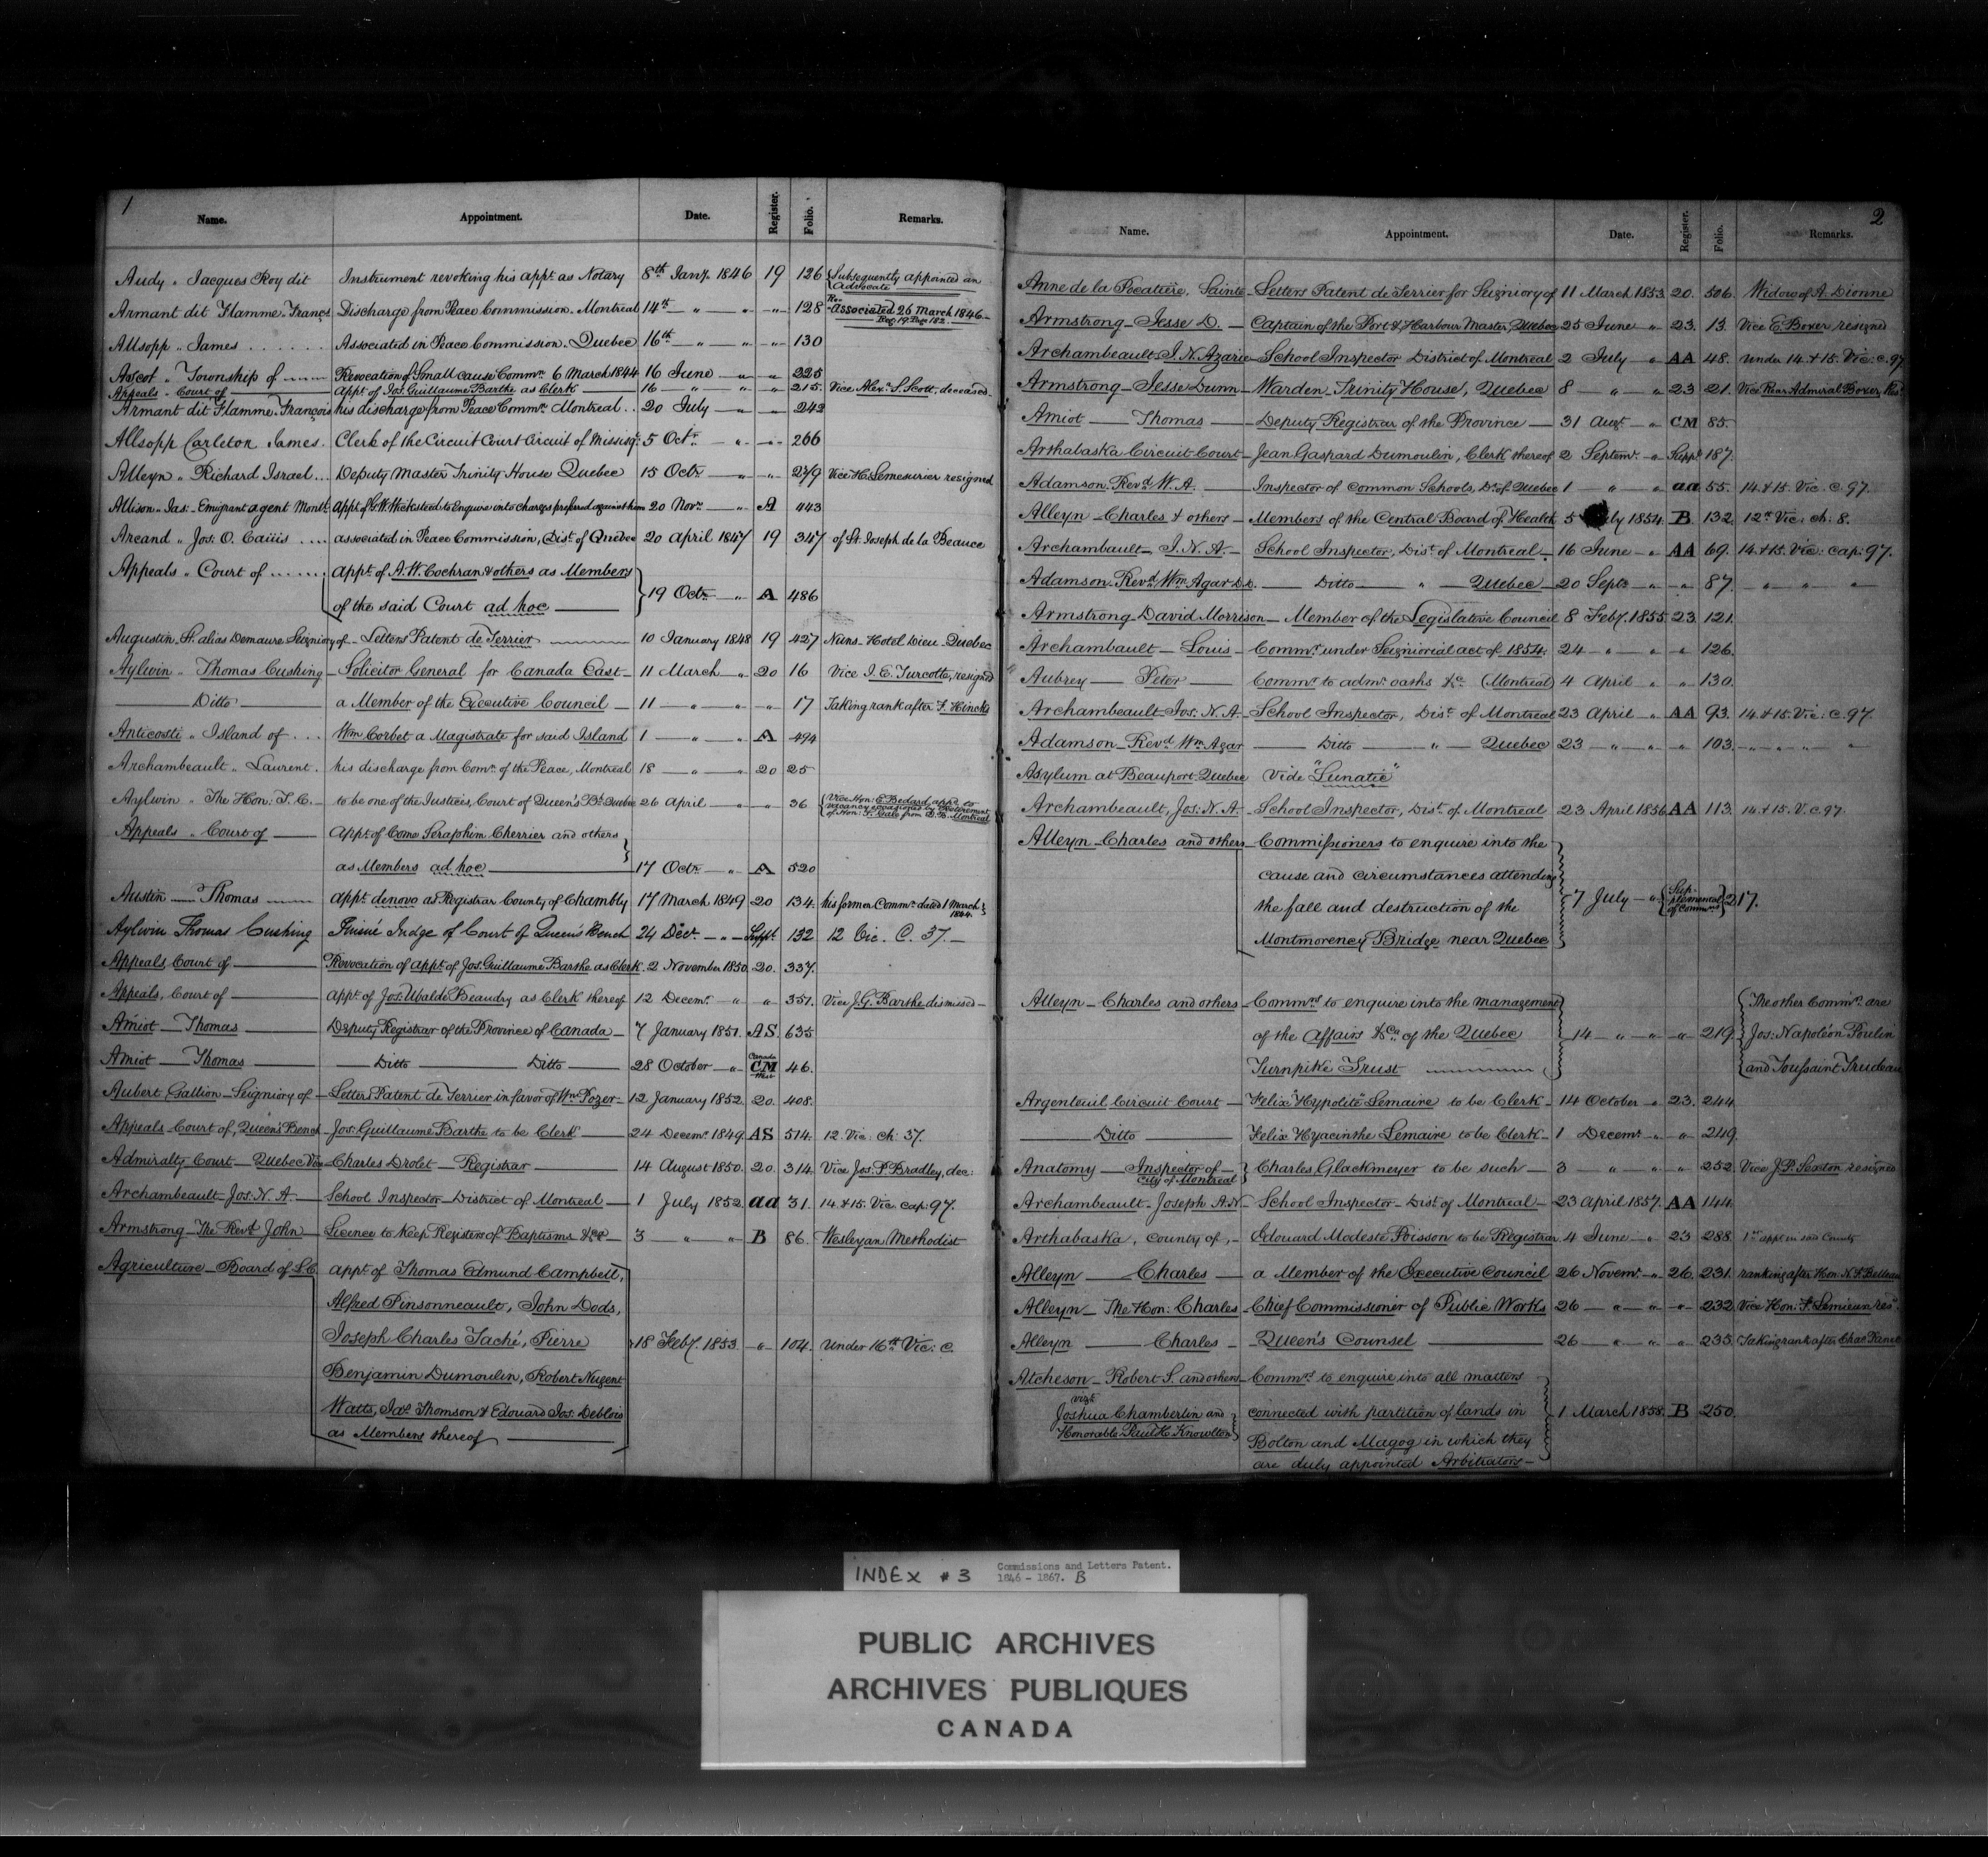 1
Name. Appointment. Date. Register. Folio. Remarks.
Audy „ Jacques Roy dit Instrument revoking his appt. as Notary 8th Jany. 1846 19 126 {Subsequently appointed an Advocate
Armant dit Flamme „ Françs Discharge from Peace Commission. Montreal 14th — „ — „ — „ — 128 Re-associated 26 March 1846. — Reg. 19. Page 182.
Allsopp „ James . . . . . . . Associated in Peace Commission. Quebec 16th — „ — „ — „ — 130
Ascot „ Township of —— Revocation of Small cause Commn. 6 March 1844 16 June — „ — „ 225
Appeals „ Court of —— Appt. of Jos. Guillaume Barthe as Clerk —— 16 — „ — „ — „ 215. Vice Alexr. S. Scott, deceased.
Armant dit Flamme. François his discharge from Peace Commn. Montreal . . 20 July — „ — „ — 243
Allsopp Carleton James. Clerk of the Circuit Court Circuit of Missisqi. 5 Octr. — „ — „ — 266
Alleyn „ Richard Israel . . . Deputy Master Trinity House Quebec 15 Octr. — „ — „ — 279 Vice H. Lemesurier resigned
Allison „ Jas: Emigrant agent Montl. Appt. of G. W. Wicksteed to Enquire into Charges preferred against him 20 Novr. — „ — A 443
Arcand „ Jos: O. Caiüs . . . . associated in Peace Commission, Dist. of Quebec 20 April 1847 19 347 of St. Joseph de la Beauce
Appeals „ Court of . . . . . . Appt. of A. W. Cochran & others as Members
of the said Court ad hoc —— 19 Octr. — „ — A 486
Augustin, St. alias Demaure Seigniory of — Letters Patent de Terrier —— 10 January 1848 19 427 Nuns - Hotel Dieu - Quebec
Aylwin „ Thomas Cushing — Solicitor General for Canada East — 11 March — „ — 20 16 Vice J. E. Turcotte, resigned
—— Ditto —— a Member of the Executive Council — 11 — „ — „ — „ — 17 Taking rank after F. Hincks
Anticosti „ Island of . . . Wm. Corbet a Magistrate for said Island 1 — „ — „ — A — 494
Archambeault „ Laurent. his discharge from Comn. of the Peace, Montreal 18 — „ — 20 25
Aylwin „ The Hon: T. C. — to be one of the Justices, Court of Queen's Bh. Quebec 26 April — „ — „ — 36 {Vice Hon: E. Bedard appd. to vacancy occasioned by Retirement of Hon: S. Gale from Q. B. Montreal
Appeals „ Court of —— Appt. of Come Seraphim Cherrier and others
as Members ad hoc —— 17 Octr. — „ — A — 520
Austin —— Thomas —— appt. denovo as Registrar County of Chambly 17 March 1849 20 134. his former Commn. dated 1 March 1844.
Aylwin Thomas Cushing Puisné Judge of Court of Queen's Bench 24 Decr. — „ — Suppt. 132 12 Vic. C. 37. —
Appeals, Court of —— Revocation of appt. of Jos. Guillaume Barthe as Clerk. 2 November 1850. 20. 337.
Appeals, Court of —— appt. of Jos: Ubalde Beaudry as Clerk thereof 12 Decemr. — „ — „ — 351. Vice J. G. Barthe dismissed —
Amiot — Thomas —— Deputy Registrar of the Province of Canada — 7 January 1851. AS. 635
Amiot — Thomas —— Ditto —— Ditto —— 28 October — „ — Canada CM West 46.
Aubert Gallion — Seigniory of — Letters Patent de Terrier in favor of Wm. Pozer — 12 January 1852. 20. 408.
Appeals — Court of, Queen's Bench — Jos: Guillaume Barthe to be Clerk —— 24 Decemr. 1849. AS 514. 12 Vic: ch: 37.
Admiralty Court — Quebec Vice — Charles Drolet — Registrar —— 14 August 1850. 20. 314. Vice Jos. P. Bradley, dec:
Archambeault — Jos. N. A. — School Inspector — District of Montreal — 1 July 1852. aa 31. 14 & 15. Vic. cap: 97.
Armstrong — The Revd. John — Licence to Keep Registers of Baptisms &ca — 3 — „ — „ B 86. Wesleyan Methodist
Agriculture — Board of L. C. appt. of Thomas Edmund Campbell,
Alfred Pinsonneault, John Dods,
Joseph Charles Taché, Pierre 18 Feby. 1853. — „ — 104. Under 16th Vic: c.
Benjamin Dumoulin, Robert Nugent
Watts, Jas. Thomson & Edouard Jos: Deblois
as Members thereof ——
2
Name. Appointment. Date. Register. Folio. Remarks.
Anne de la Pocatiere, Sainte — Letters Patent de Terrier for Seigniory of 11 March 1853. 20. 506. Widow of A. Dionne
Armstrong — Jesse D. — Captain of the Port & Harbour Master, Quebec 25 June — „ 23. 13. Vice E. Boxer resigned
Archambeault. J. N. Azarie — School Inspector District of Montreal 2 July — „ AA 48. Under 14. & 15. Vic: c. 97
Armstrong — Jesse Dunn — Warden — Trinity House, Quebec 8 — „ — „ 23 21. Vice Rear Admiral Boxer, Resd.
Amiot —— Thomas —— Deputy Registrar of the Province — 31 Augt. — „ CM 85.
Arthabaska Circuit Court — Jean Gaspard Dumoulin, Clerk thereof 2 Septemr. — „ Suppt. 187.
Adamson. Revd. W. A. —— Inspector of common Schools, D. of Quebec 1 — „ — „ aa 55. 14. & 15. Vic. c. 97.
Alleyn — Charles & others — Members of the Central Board of Health 5 July 1854. B. 132. 12th Vic: ch: 8.
Archambault — J. N. A. — School Inspector, Dist. of Montreal — 16 June — „ AA 69. 14. & 15. Vic: cap: 97.
Adamson. Revd. Wm. Agar D.D. —— Ditto —— „ — Quebec — 20 Septr. — „ — „ — 87. — „ — „ — „
Armstrong David Morrison — Member of the Legislative Council 8 Feby. 1855. 23. 121.
Archambault — Louis — Commr. under Seigniorial act of 1854. 24 — „ — „ — „ 126.
Aubrey —— Peter —— Commr. to admr. oaths &c. (Montreal) 4 April „ — „ 130.
Archambeault. Jos: N. A. — School Inspector, Dist. of Montreal 23 April „ AA 93. 14. & 15. Vic: c. 97.
Adamson — Revd. Wm. Agar —— Ditto —— „ — Quebec 23 — „ — „ — „ 103. — „ — „ — „
Asylum at Beauport Quebec Vide "Lunatic"
Archambeault, Jos: N. A. — School Inspector, Dist. of Montreal 23 April 1856. AA 113. 14. & 15. V. c 97.
Alleyn — Charles and others — Commissioners to enquire into the
cause and circumstances attending
the fall and destruction of the 7 July — „ {Supplemental of Commns} 217.
Montmorency Bridge near Quebec
Alleyn — Charles and others — Commrs. to enquire into the management {The other Commrs. are
of the Affairs &ca. of the Quebec 14 — „ — „ — „ 219. Jos: Napoléon Poulin
Turnpike Trust —— and Toussaint Trudeau
Argenteuil Circuit Court — Felix "Hypolite" Lemaire to be Clerk — 14 October „ 23. 244
—— Ditto —— Felix Hyacinthe Lemaire to be Clerk — 1 Decemr. — „ — „ 249.
Anatomy — Inspector of — City of Montreal } Charles Glackmeyer to be such — 3 — „ — „ — „ 252. Vice J. P. Sexton resigned
Archambeault — Joseph A. N. — School Inspector — Dist. of Montreal — 23 April 1857. AA 144.
Arthabaska, County of, — Edouard Modeste Poisson to be Registrar 4 June — „ 23 288. 1st. appt. in said County
Alleyn —— Charles — a Member of the Executive Council 26 Novemr. „ 26. 231. ranking after Hon: N. F. Belleau
Alleyn — The Hon: Charles — Chief Commissioner of Public Works 26 — „ — „ — „ 232 Vice Hon: F. Lemieux resd.
Alleyn —— Charles — Queen's Counsel —— 26 — „ — „ — „ 235. Taking rank after Chas. Panet
Atcheson — Robert S. and others — Commrs. to enquire into all matters
vizt.
Joshua Chamberlin and connected with partition of lands in 1 March 1858. B 250.
Honorable Paul H. Knowlton Bolton and Magog in which they
are duly appointed Arbitrators —
INDEX # 3 Commissions and Letters Patent.
1846 - 1867. B
PUBLIC ARCHIVES
ARCHIVES PUBLIQUES
CANADA